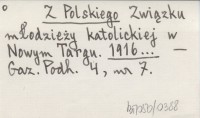 Z Polskiego Związku
młodzieży katolickiej w
Nowym Targu. 1916... —
Gaz. Podh. 4, nr 7.